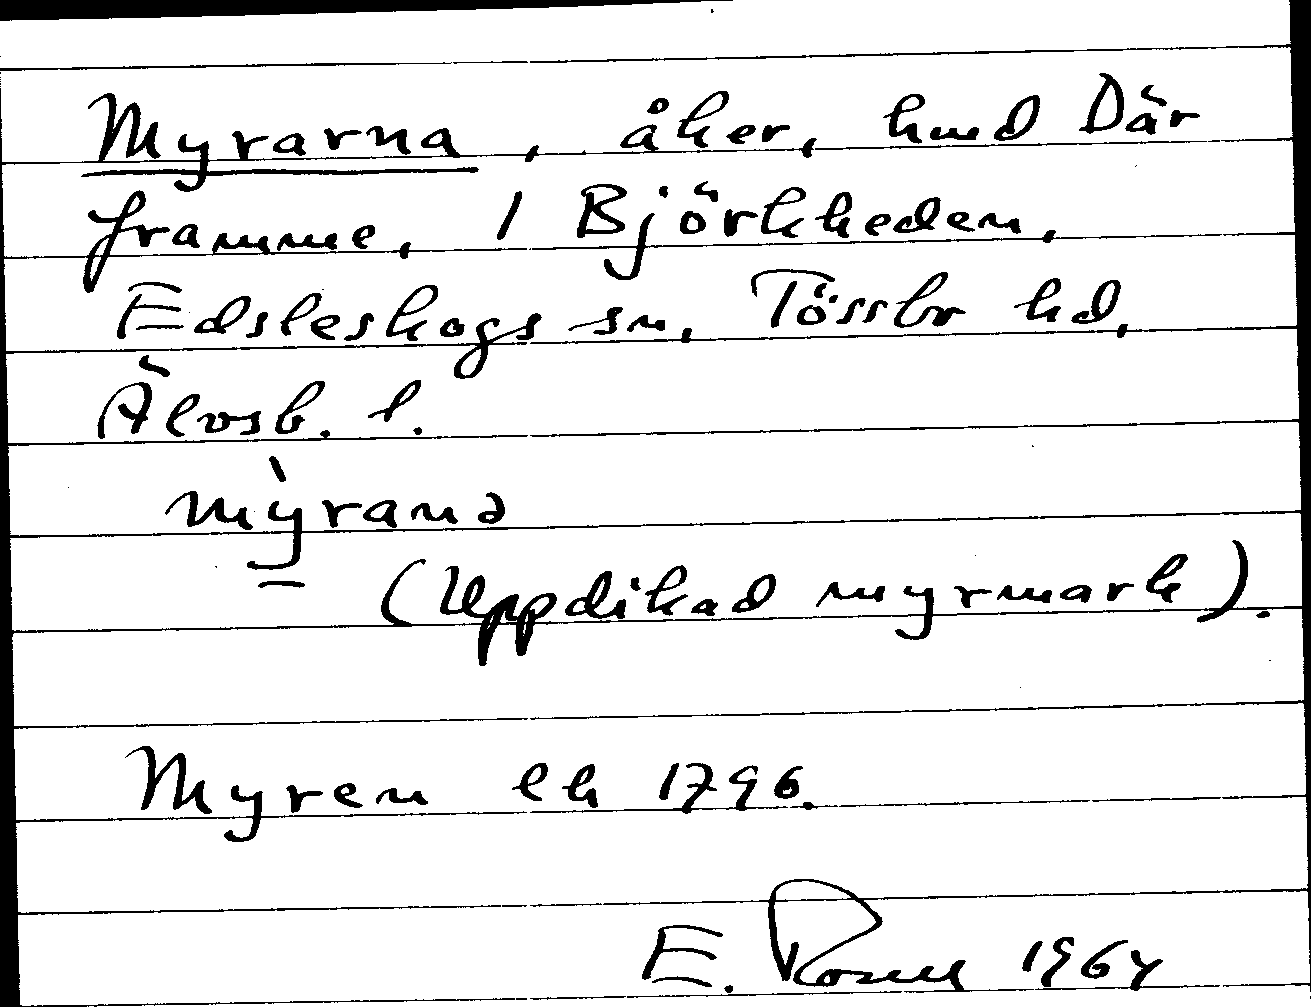 Myrarna, åker, hmd Där
framme, 1 Björkheden,
Edsleskogs sn, Tössbo hd,
Älvsb. l.
mỳranə
(Uppdikad myrmark).
Myren lk 1796.
E. Rosell 1964